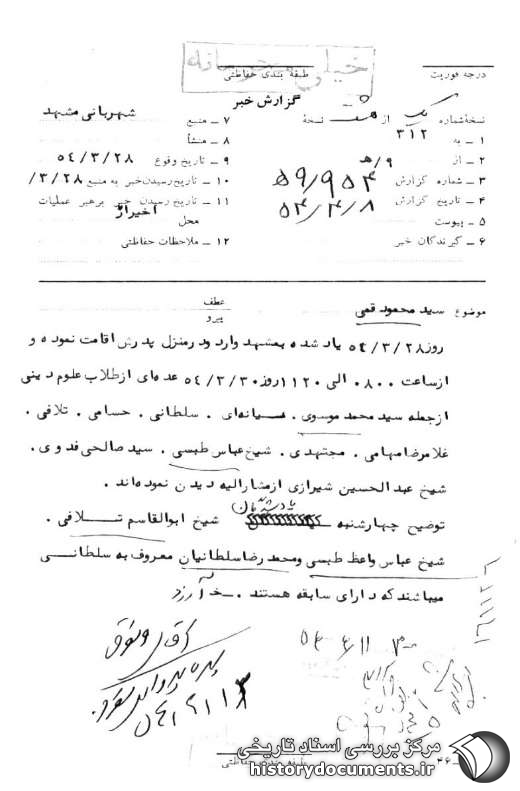 خیلی محرمانه
درجه فوریت
طبقه بندی حفاظتی
گزارش خبر
نسخه شماره یک از نسخه
۱ ـ به ۳۱۲
۲ ـ از ۹/هـ
۳ ـ شماره گزارش ۵۹/۹۵۴
۴ ـ تاریخ گزارش ۵۴/۴/۸
۵ ـ پیوست
۶ ـ گیرندگان خبر
۷ ـ منبع شهربانی مشهد
۸ ـ منشأ
۹ ـ تاریخ وقوع ۵۴/۳/۲۸
۱۰ ـ تاریخ رسیدن خبر به منبع ۳/۲۸/
۱۱ ـ تاریخ رسیدن خبر برهبر عملیات
محل اخیراً
۱۲ ـ ملاحظات حفاظتی
موضوع سید محمود قمی
عطف
پیرو
روز ۵۴/۳/۲۸ یاد شده بمشهد وارد و در منزل پدرش اقامت نموده و
از ساعت ۰۸۰۰ الی ۱۱۲۰ روز ۵۴/۳/۳۰ عده‌ای از طلاب علوم دینی
از جمله سید محمد موسوی . میانه‌ای . سلطانی . حسامی . تلافی .
غلامرضا مهامی . مجتهدی . شیخ عباس طبسی . سید صالحی فدوی .
شیخ عبدالحسین شیرازی از مشارالیه دیدن نموده‌اند .
توضیح چهارشنبه یادشدگان شیخ ابوالقاسم تلافی .
شیخ عباس واعظ طبسی و محمد رضا سلطانیان معروف به سلطانی
میباشند که دارای سابقه هستند .
آقای وثوق
طبقه بندی حفاظتی
مرکز بررسی اسناد تاریخی
historydocuments.ir